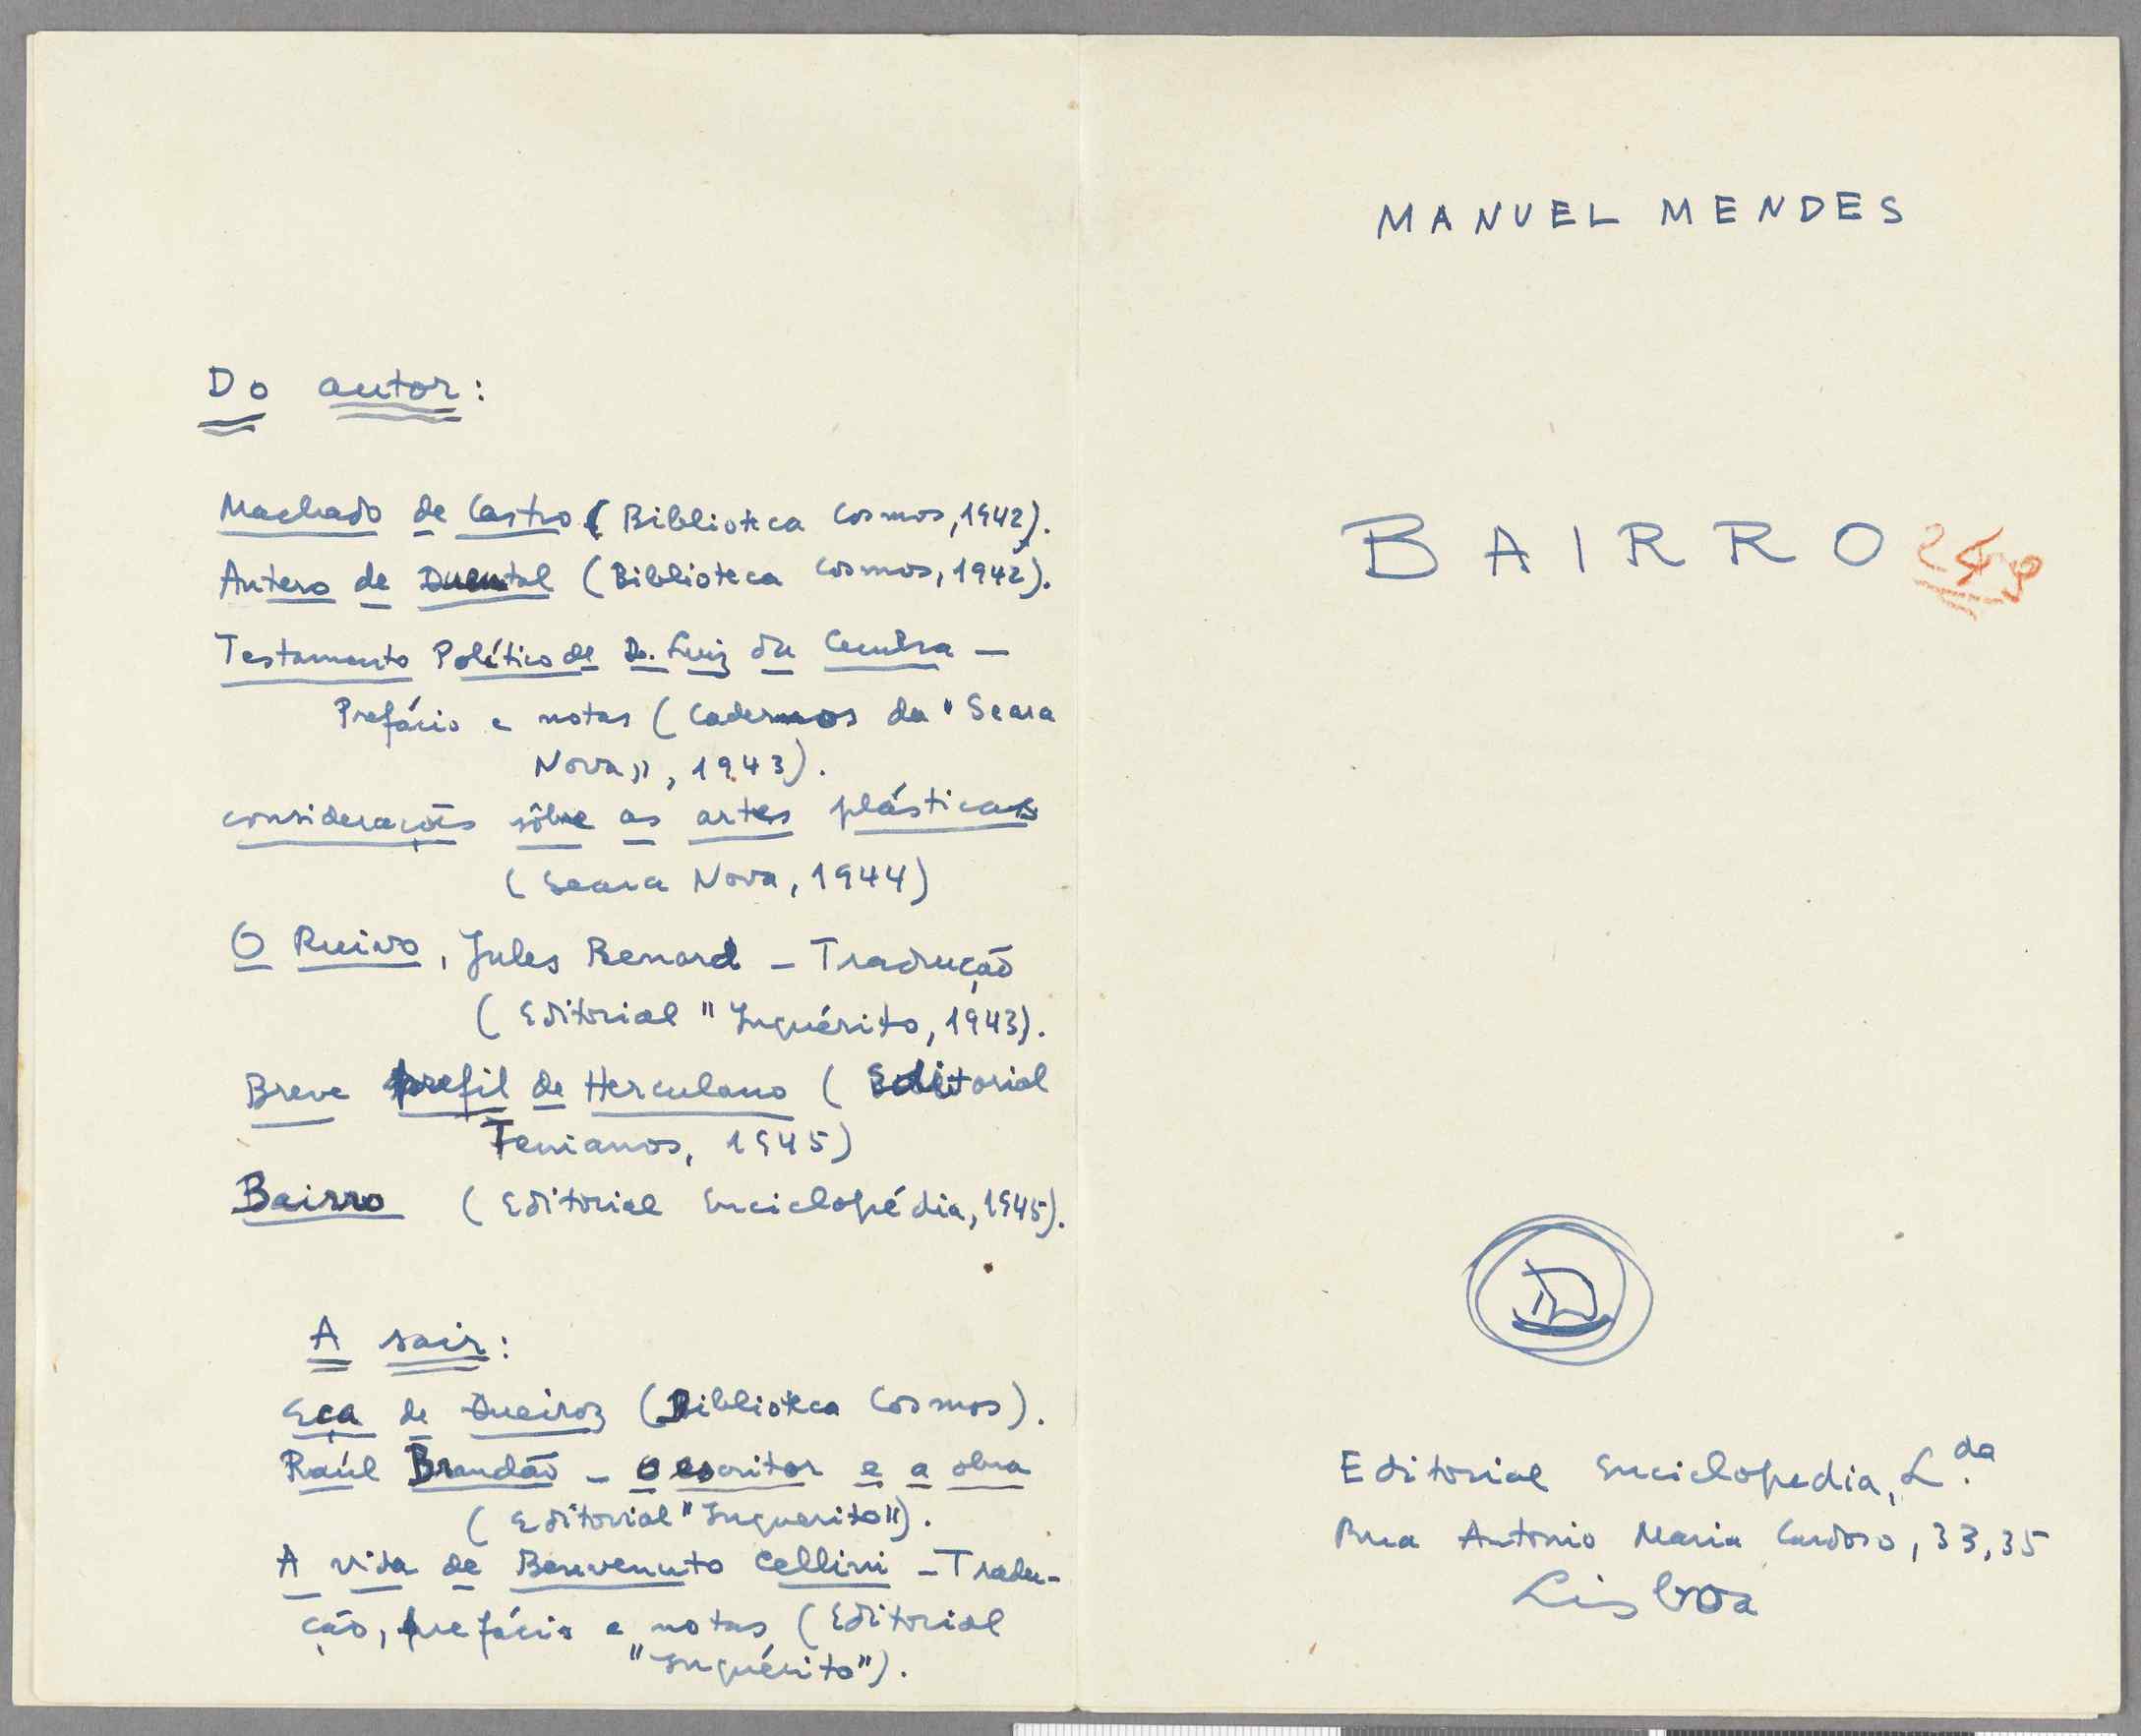 Do autor:
Machado de Castro (Biblioteca Cosmos, 1942).
Antero de Quental (Biblioteca Cosmos, 1942).
Testamento Político de D. Luiz da Cunha —
Prefácio e notas (Cadernos da "Seara
Nova», 1943).
considerações sôbre as artes plásticas
(Seara Nova, 1944)
O Ruivo, Jules Renard - Tradução
(Editorial "Inquérito, 1943).
Breve prefil de Herculano (Editorial
Fenianos, 1945)
Bairro (Editorial Enciclopédia, 1945).
A sair:
Eça de Queiroz (Biblioteca Cosmos).
Raúl Brandão - o escritor e a obra
(Editorial "Inquerito").
A vida de Benvenuto Cellini - Tradu-
ção, prefácio e notas (Editorial
"Inquérito").
MANUEL MENDES
BAIRRO
Editorial Enciclopedia, L.da
Rua Antonio Maria Cardoso, 33, 35
Lisboa